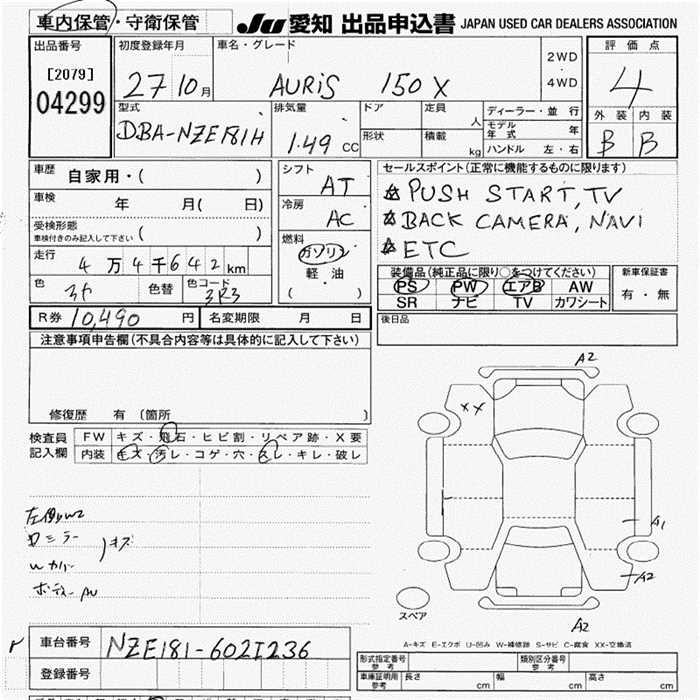 車内保管・守衛保管
JU 愛知 出品申込書 JAPAN USED CAR DEALERS ASSOCIATION
出品番号 初度登録年月 車名・グレード 2WD・4WD 評価点
[2079]
04299
27 10月 AURIS 150 X 4
型式 排気量 ドア 定員 人 ディーラー・並行 外装 内装
モデル年式 年
DBA-NZE181H 1.49 CC 形状 積載 kg ハンドル 左・右 B B
車歴 自家用・( ) シフト AT セールスポイント(正常に機能するものに限ります)
☆PUSH START, TV
車検 年 月( 日) 冷房 AC
☆BACK CAMERA, NAVI
受検形態 車検付きのみ記入して下さい ( ) 燃料 ガソリン
☆ETC
走行 4万4千642km 軽・油
( )
装備品(純正品に限り○をつけてください) 新車保証書
PS PW エアB AW 有・無
SR ナビ TV カワシート
色 色替 色コード 3R3
R券 10,490 円 名変期限 月 日 後日品
注意事項申告欄(不具合内容等は具体的に記入して下さい)
修復歴 有 (箇所 )
検査員 FW キズ・飛石・ヒビ割・リペア跡・X要
記入欄 内装 キズ・汚レ・コゲ・穴・スレ・キレ・破レ
A2
XX
A1
A2
A2
ミラー
キズ
Wカバー
スペア
A-キズ E-エクボ U-凹み W-補修跡 S-サビ C-腐食 XX-交換済
車台番号 NZE181-6021236
登録番号
形式指定番号 参考 類別区分番号 参考
車庫証明用 参考 長さ cm 幅 cm 高さ cm